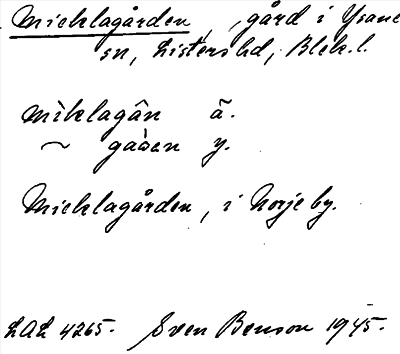 Micklagården, gård i Ysane
sn, Listers hd, Blek. l.
mìklagân ä.
~ gaàen y.
Micklagården, i Norje by.
LAL 4265. Sven Benson 1945.